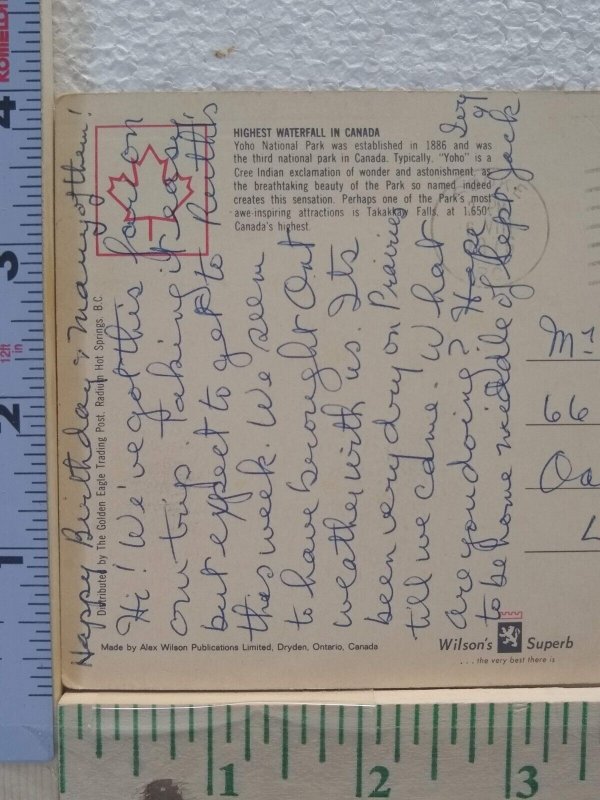 HIGHEST WATERFALL IN CANADA
Yoho National Park was established in 1886 and was
the third national park in Canada. Typically, "Yoho" is a
Cree Indian exclamation of wonder and astonishment, as
the breathtaking beauty of the Park so named indeed
creates this sensation. Perhaps one of the Park's most
awe-inspiring attractions is Takakkaw Falls, at 1,650'
Canada's highest.
Happy Birthday & many of them!
Distributed by The Golden Eagle Trading Post, Radium Hot Springs, B.C.
Hi! We've got this far on
our trip. Taking it easy,
but expect to get to Ruth's
this week. We seem
to have brought Ont
weather with us. Its
been very dry on Prairies
till we came. What
are you doing? Hope
to be home middle of Sept.
Ivy &
Jack
66
Made by Alex Wilson Publications Limited, Dryden, Ontario, Canada
Wilson's Superb
. . . the very best there is
KOMELON
4
3
12ft
in
2
1
1
2
3